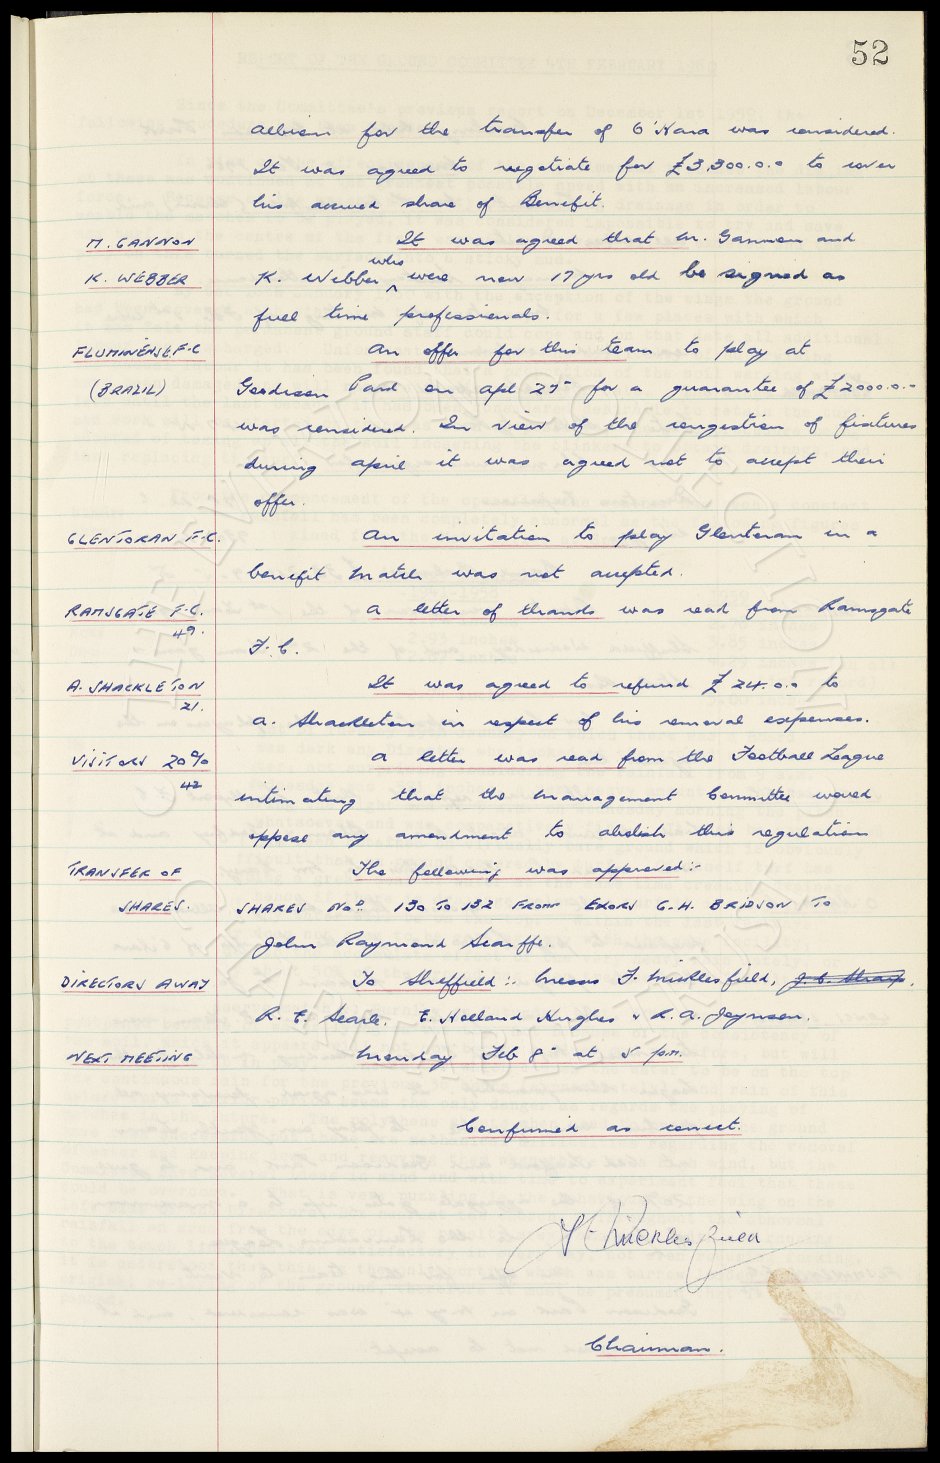 52
Albion for the transfer of O'Hara was considered.
It was agreed to negotiate for £3,300.0.0 to cover
his accrued share of Benefit.
M. GANNON It was agreed that M. Gannon and
who
K. WEBBER K. Webber ^ were now 17 yrs old be signed as
full time professionals.
FLUMINENSE F.C An offer for this team to play at
(BRAZIL) Goodison Park on Apl 25th for a guarantee of £2000.0.0
was considered. In view of the congestion of fixtures
during April it was agreed not to accept their
offer.
GLENTORAN F.C. An invitation to play Glentoran in a
benefit match was not accepted.
RAMSGATE F.C. A letter of thanks was read from Ramsgate
49. F.C.
A. SHACKLETON It was agreed to refund £24.0.0 to
21. A. Shackleton in respect of his removal expenses.
VISITORS 20% A letter was read from the Football League
42 intimating that the Management Committee would
oppose any amendment to abolish this regulation
TRANSFER OF The following was approved:-
SHARES. SHARES NOS. 130 TO 132 FROM EXORS G.H. BRIDSON TO
John Raymond Scarffe.
DIRECTORS AWAY To Sheffield:- Messrs F. Micklesfield, J.C. Sharp.
R.E. Searle. E. Holland Hughes & R.A. Joynson.
NEXT MEETING Monday Feb 8th at 5 p.m.
Confirmed as correct.
F E Micklesfield
Chairman.
THE EVERTON COLLECTION